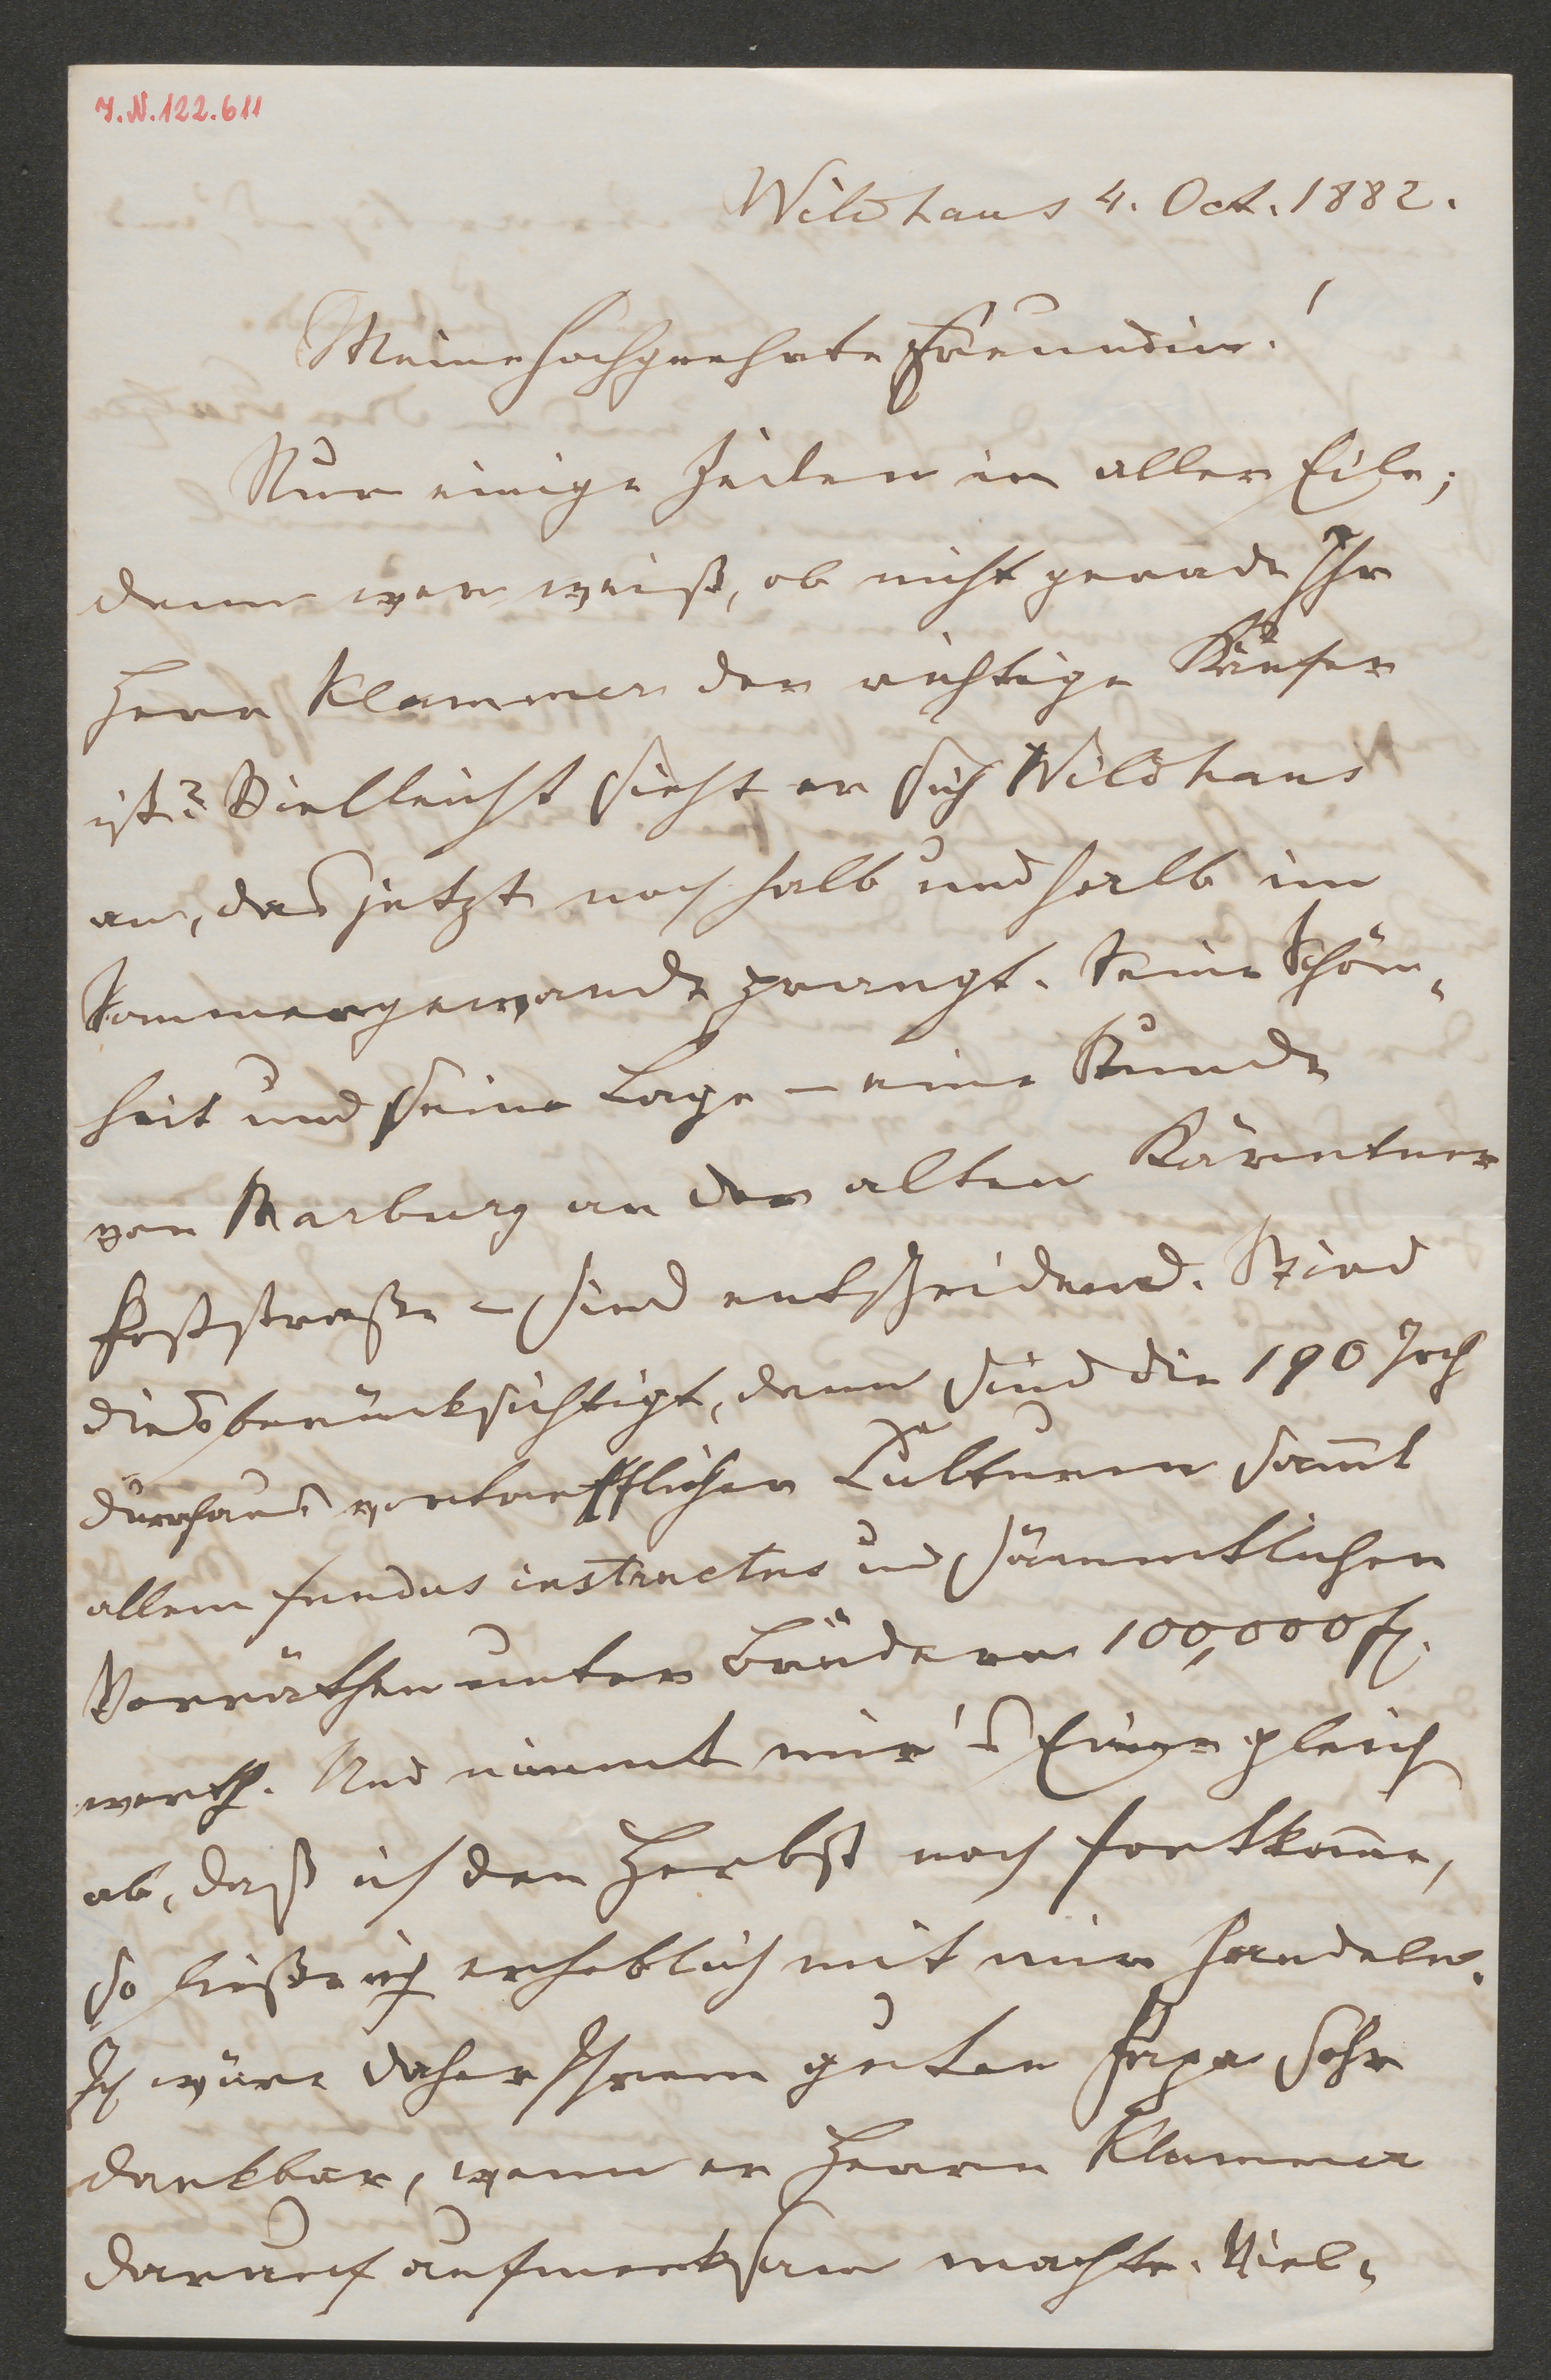 J.N.122.611
Wildhaus 4. Oct. 1882.
Meine hochgeehrte Freundin!
Nur einige Zeilen in aller Eile;
denn wer weiß, ob nicht gerade Ihr
Herr Klammer der richtige Käufer
ist? Vielleicht sieht er sich Wildhaus
an, das jetzt noch halb und halb im
Sommergewande prangt. Seine Schön-
heit und seine Lage – eine Stunde
von Marburg an der alten Kärntner
Poststraße – sind entscheidend. Wird
dieß berücksichtigt, dann sind die 190 Joch
durchaus vortrefflicher Culturen samt
allem fundus instructus und sämmtlichen
Vorräthen unter Brüdern 100,000 fl.
werth. Und nimmt mir's Einer gleich
ab, daß ich den Herbst noch fortkomme,
so ließe ich erheblich mit mir handeln.
Ich wäre daher Ihrem guten Papa sehr
dankbar, wenn er Herrn Klammer
darauf aufmerksam machte. Viel-